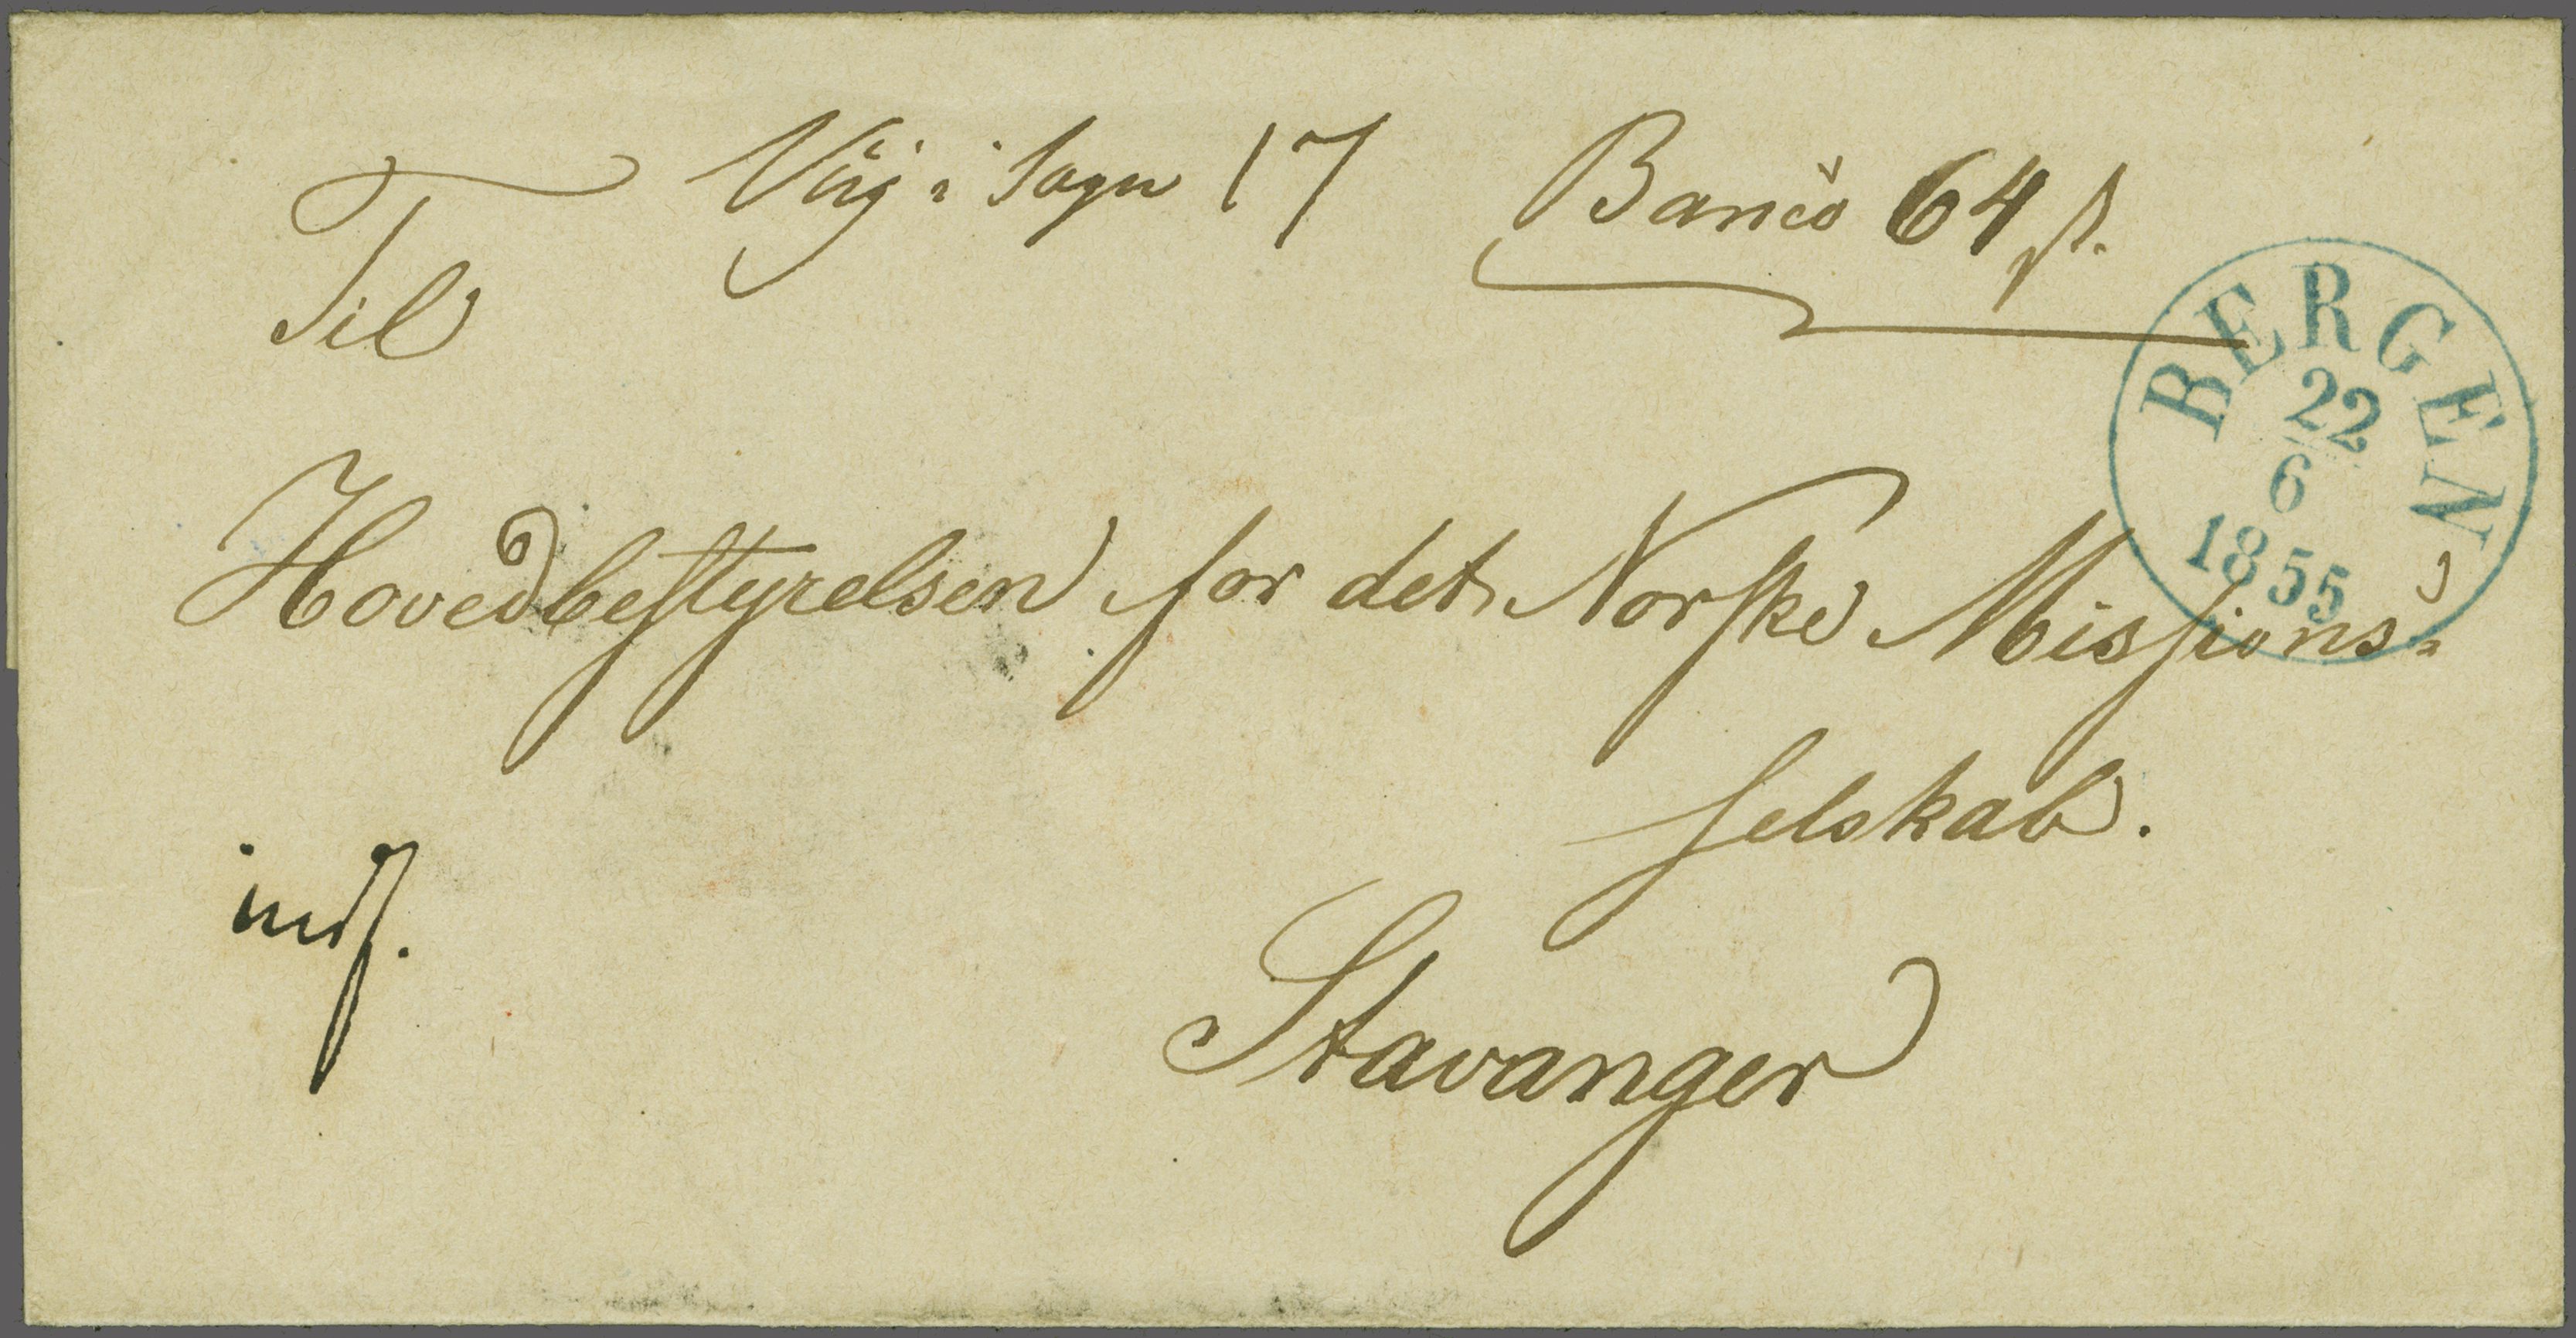 i Sogn 17
Banco 64 ſ.
Til
BERGEN
22
6
1855
Hovedbeſtyrelsen for det Norſke Misſions-
ſelskab.
Stavanger